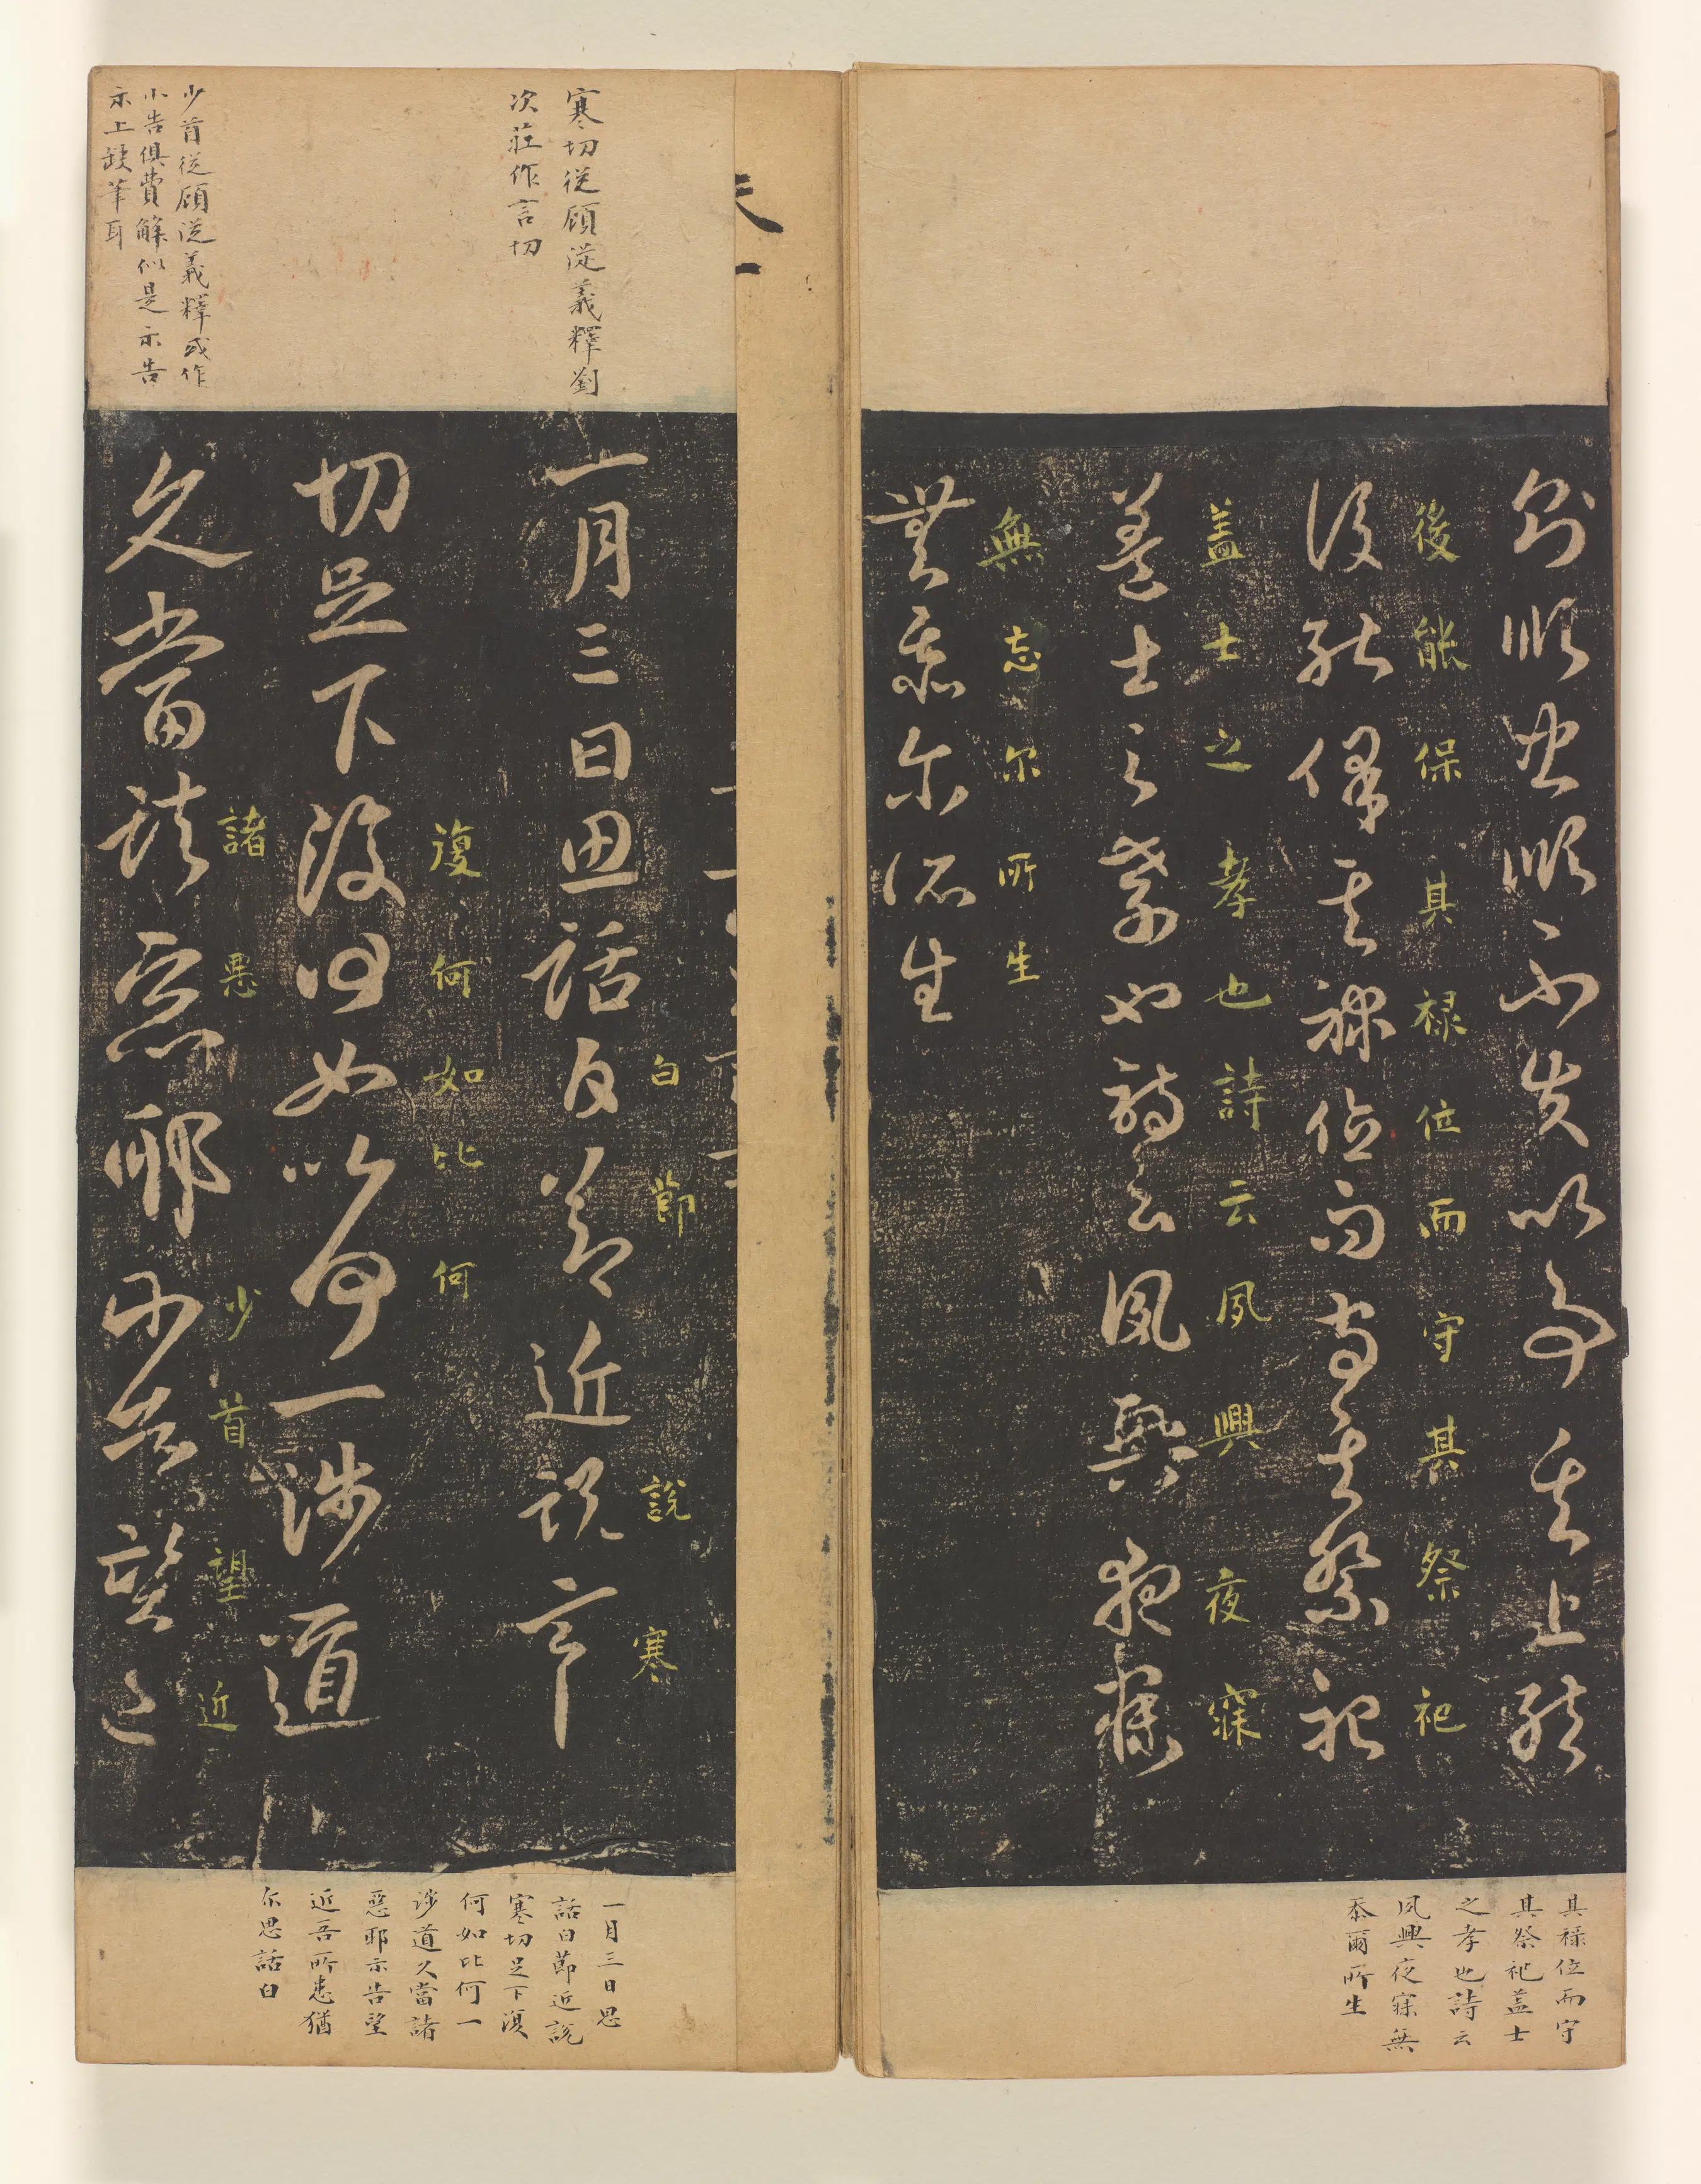 則順忠順不失以事其上然
後能保其祿位而守其祭祀
後能保其禄位而守其祭祀
盖士之孝也詩云夙興夜寐
蓋士之孝也詩云夙興夜寐
無忘尔所生
無忝尔所生
其祿位而守
其祭祀蓋士
之孝也詩云
夙興夜寐無
忝爾所生
寒切從顧從義釋劉
次莊作言切
少首從顧從義釋或作
小告俱費解似是示告
示上缺筆耳
白節說寒
一月三日思話白節近說寒
復何如比何
切足下復何如比何一涉道
諸惡少首望近
久當諸惡耶示告望近
一月三日思
話白節近說
寒切足下復
何如比何一
涉道久當諸
惡耶示告望
近吾所患猶
尔思話白